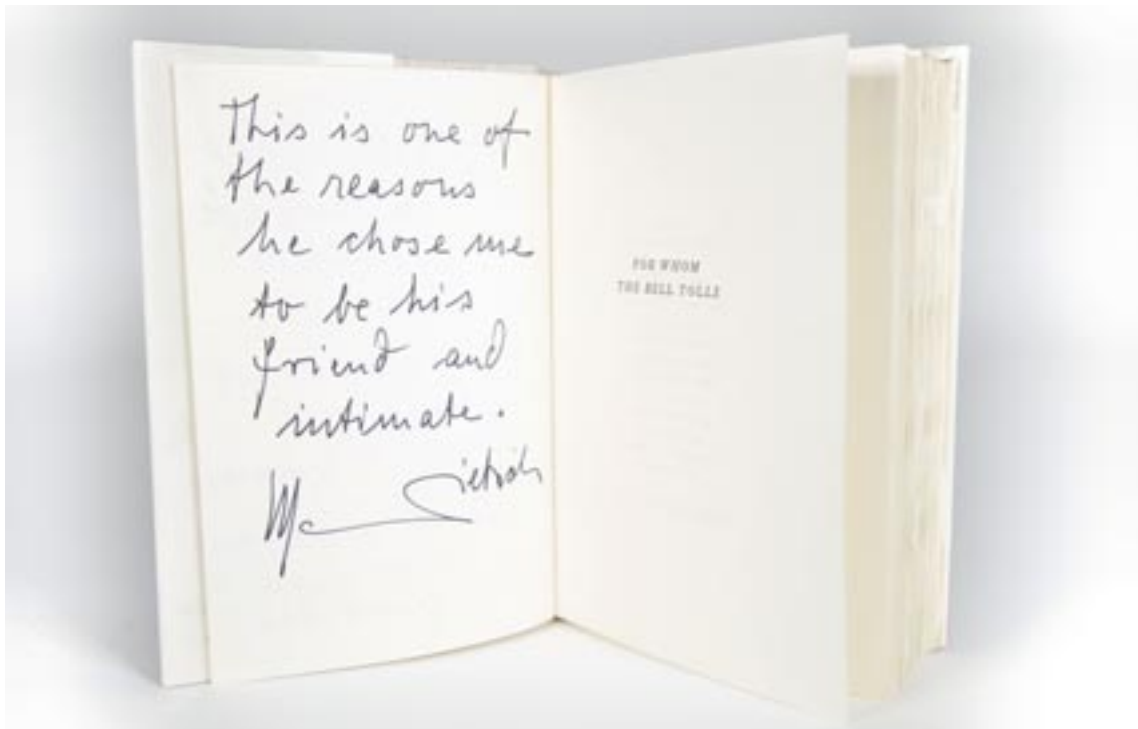 This is one of
the reasons
he chose me
to be his
friend and
intimate.
M Dietrich
FOR WHOM
THE BELL TOLLS